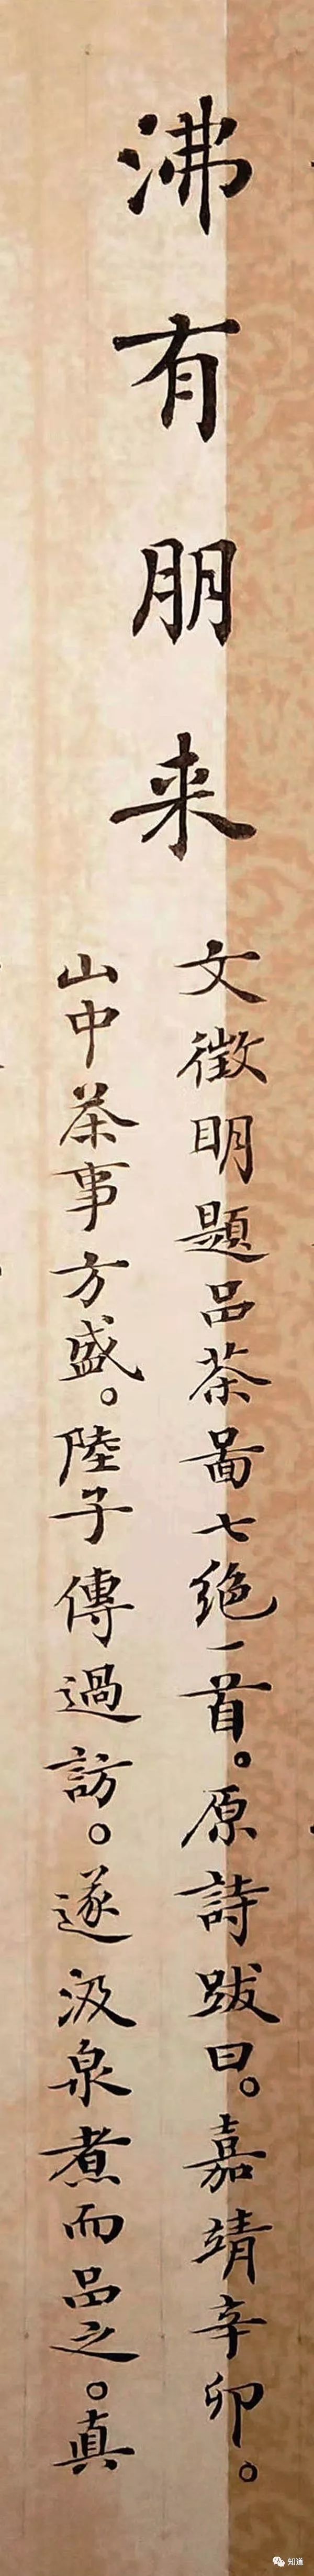 沸有朋来
文徵明題品茶畵七绝一首。原詩跋曰。嘉靖辛卯。
山中茶事方盛。陸子傳過訪。遂汲泉煮而品之。真
知道